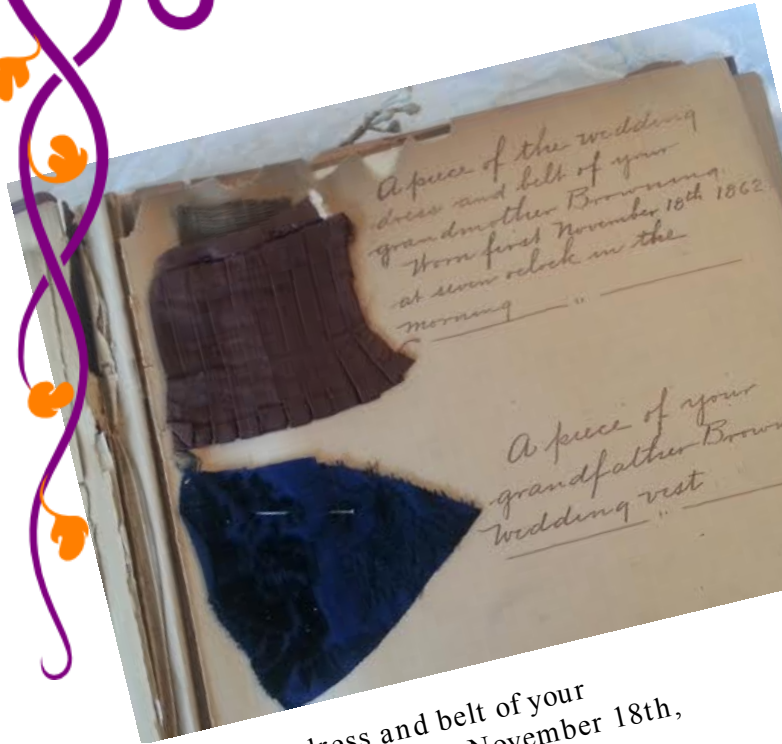 A piece of the wedding
dress and belt of your
grandmother Browning.
Worn first November 18th 1862
at seven oclock in the
morning
A piece of your
grandfather Brown
Wedding vest
dress and belt of your
November 18th,